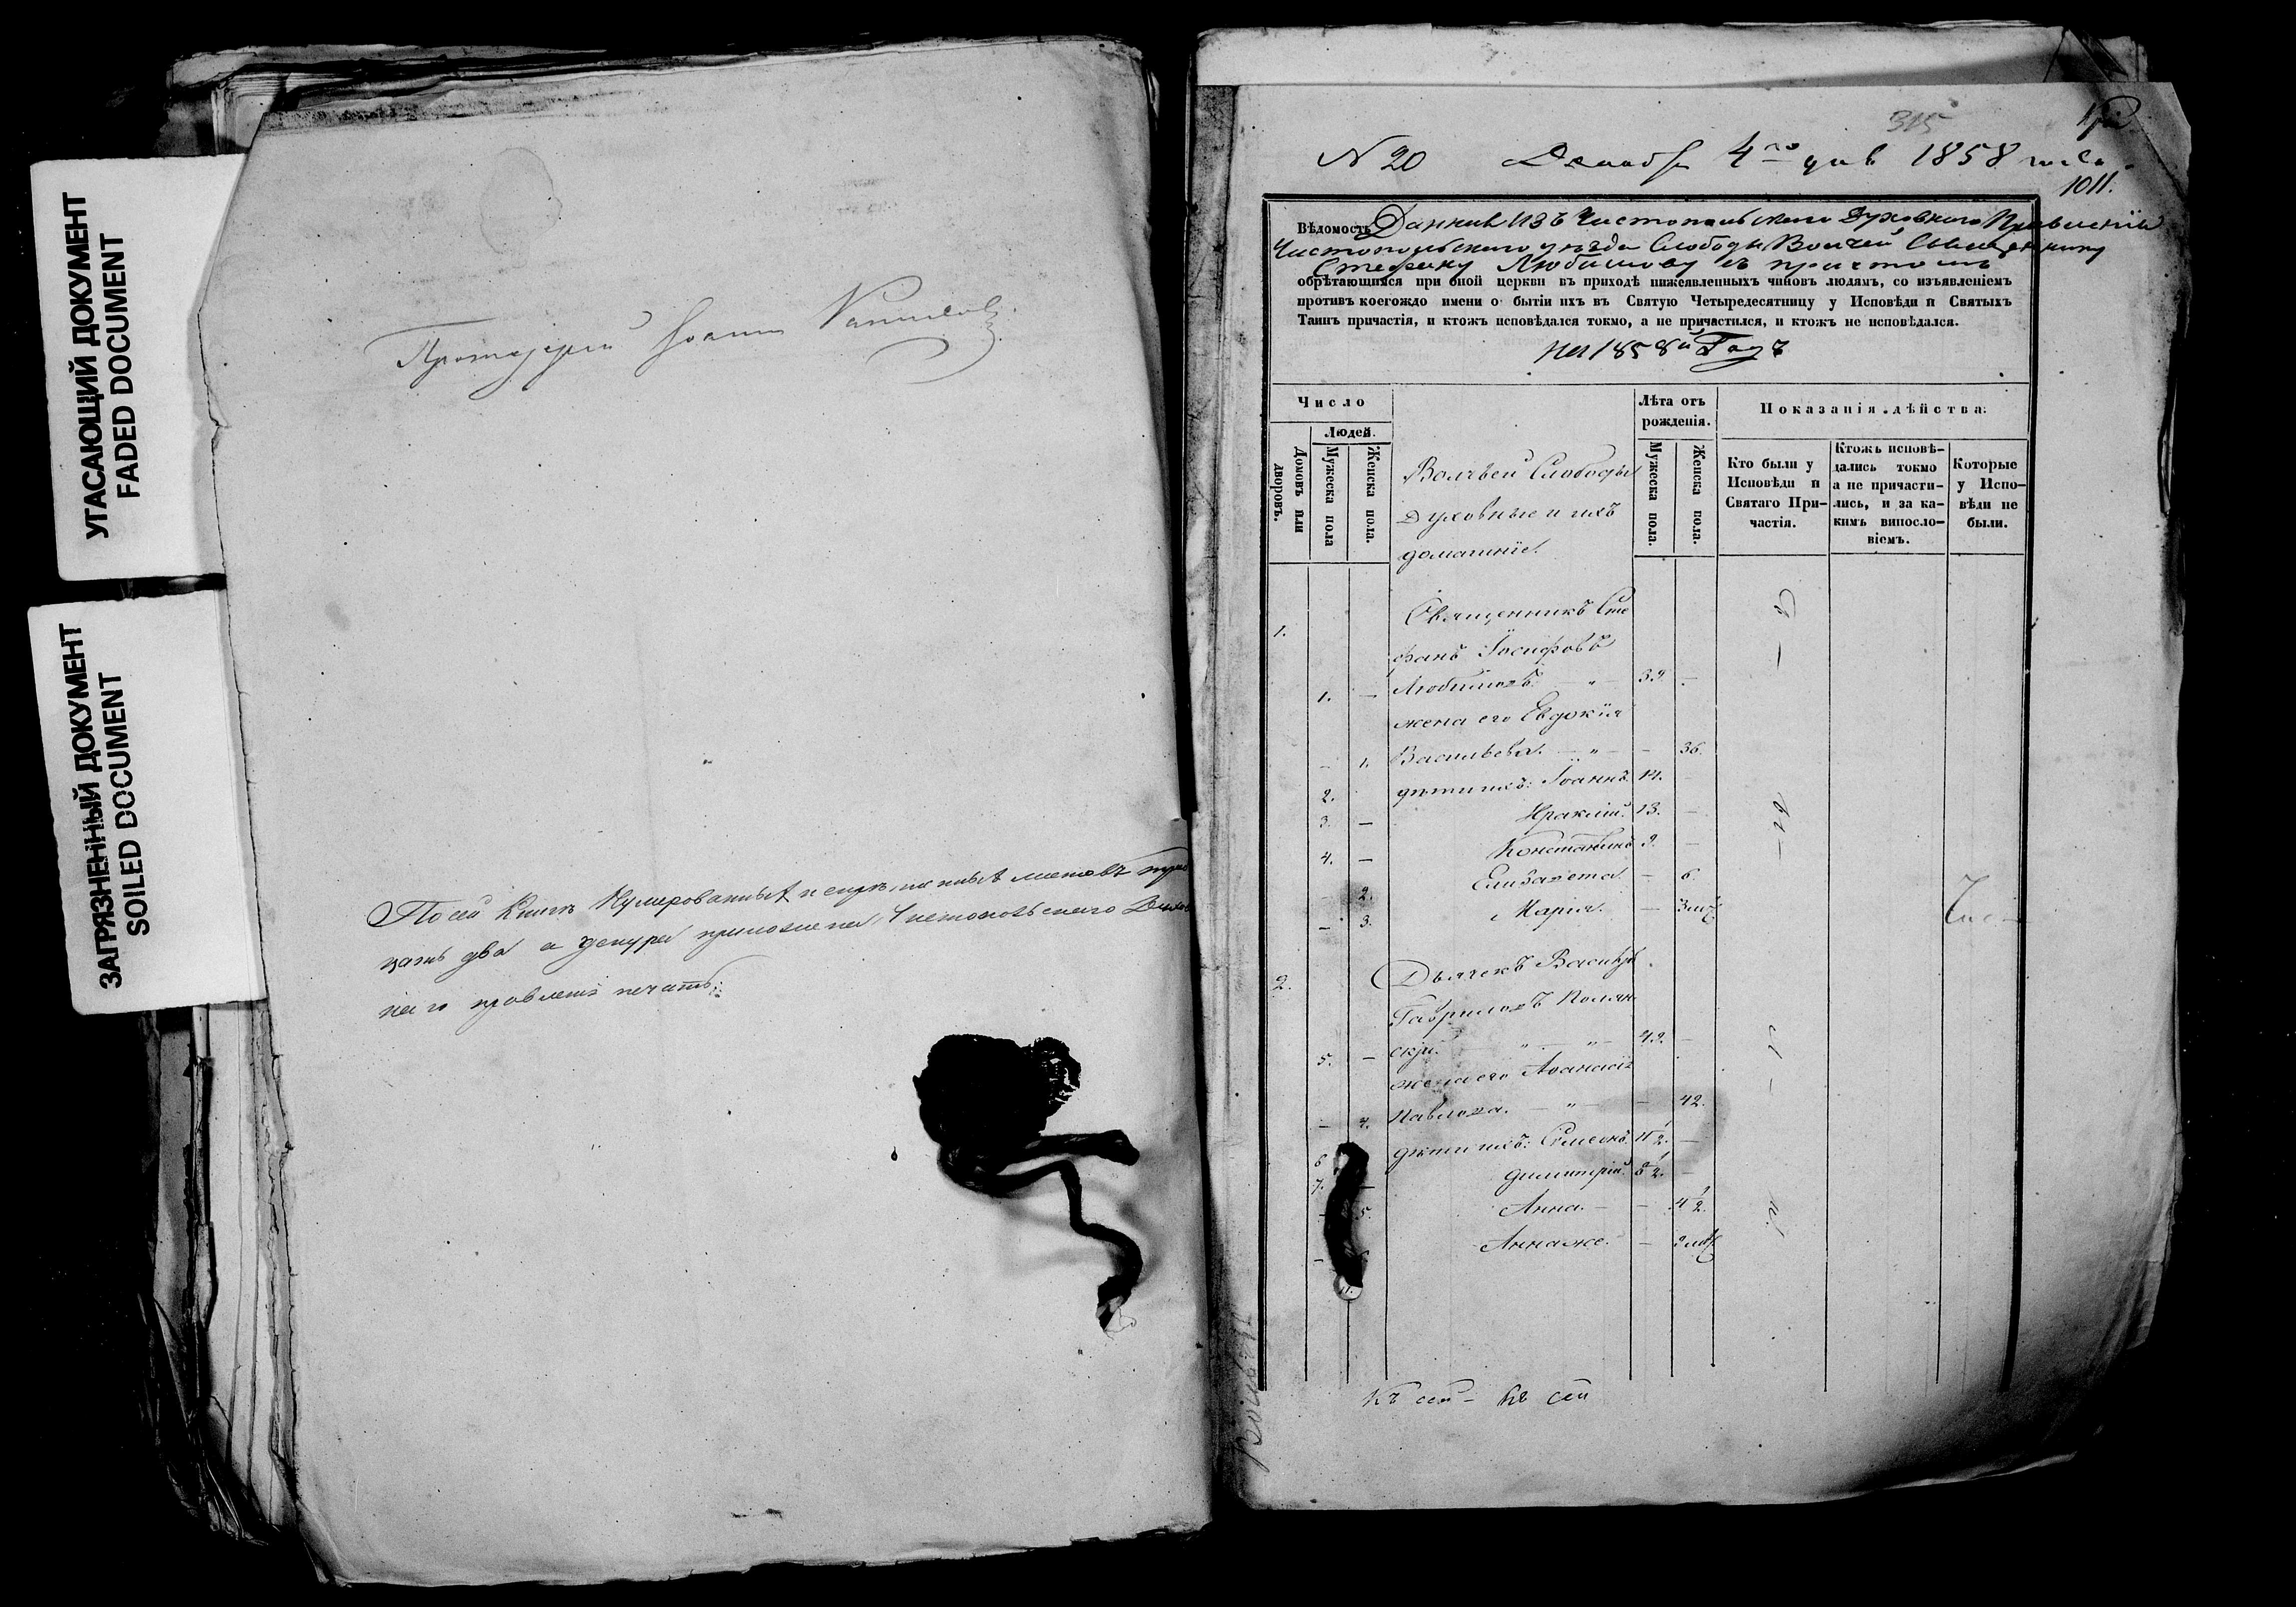 УГАСАЮЩИЙ ДОКУМЕНТ
FADED DOCUMENT
ЗАГРЯЗНЕННЫЙ ДОКУМЕНТ
SOILED DOCUMENT
Протоіерей Іоаннъ
По сей книгѣ нумерованныхъ и скрѣпленныхъ листовъ
цать два а у сенура приложена Чистопольскаго Духов
наго правленія печать.
315
N 20 Декабря 4го дня 1858 года.
1011.
Вѣдомость Данная изъ Чистопольскаго Духовнаго Правленія
Чистопольскаго уѣзда Слободы Волчей Священнику
Стефану Любимову съ причтомъ
обрѣтающимся при оной церкви въ приходѣ нижеявленныхъ чиновъ людямъ, со изъявленіемъ
противъ коегождо имени о бытіи ихъ въ Святую Четыредесятницу у Исповѣди и Святыхъ
Таинъ причастія, и ктожъ исповѣдался токмо, а не причастился, и ктожъ не исповѣдался.
На 1858й Годъ
Число
Людей.
Домовъ или дворовъ.
Мужеска пола
Женска пола.
Волчьей Слободы
Духовные и ихъ
домашніе.
Лѣта отъ
рожденія.
Мужеска пола.
Женска пола.
Показанія дѣйства:
Кто были у
Исповѣди и
Святаго При-
частія.
Ктожъ исповѣ-
дались токмо
а не причасти-
лись, и за ка-
кимъ виносло-
віемъ.
Которые
у Испо-
вѣди не
были.
1. Священникъ Сте
фанъ Іосифовъ
1. – Любимовъ. – „ – 39. –
жена его Евдокія
– 1. Васильева. – „ – – 36.
2. дѣти ихъ: Іоаннъ. 14. –
3. – Ираклій. 13. –
4. – Константинъ 9. –
– 2. Елизавета. – 6.
– 3. Марія. – 3
2. Дьячекъ Василій
Гавриловъ Полян
5. – скій. „ – „ – 42. –
жена его Аѳанасія
– 4. Павлова. – „ – – 42.
6 дѣти ихъ: Симеонъ. 11½. –
7. – Димитрій. 8½. –
– 5. Анна. – – 4½.
– Анна же. – 2
Къ сей – Къ сей